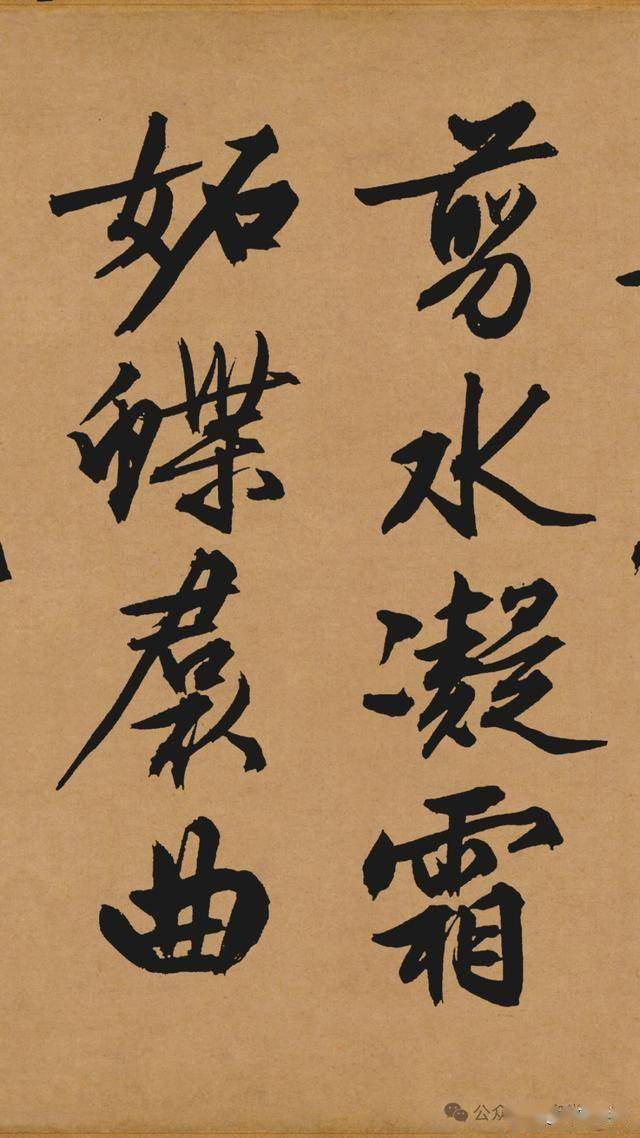 剪水凝霜
妬蝶裠曲
公众